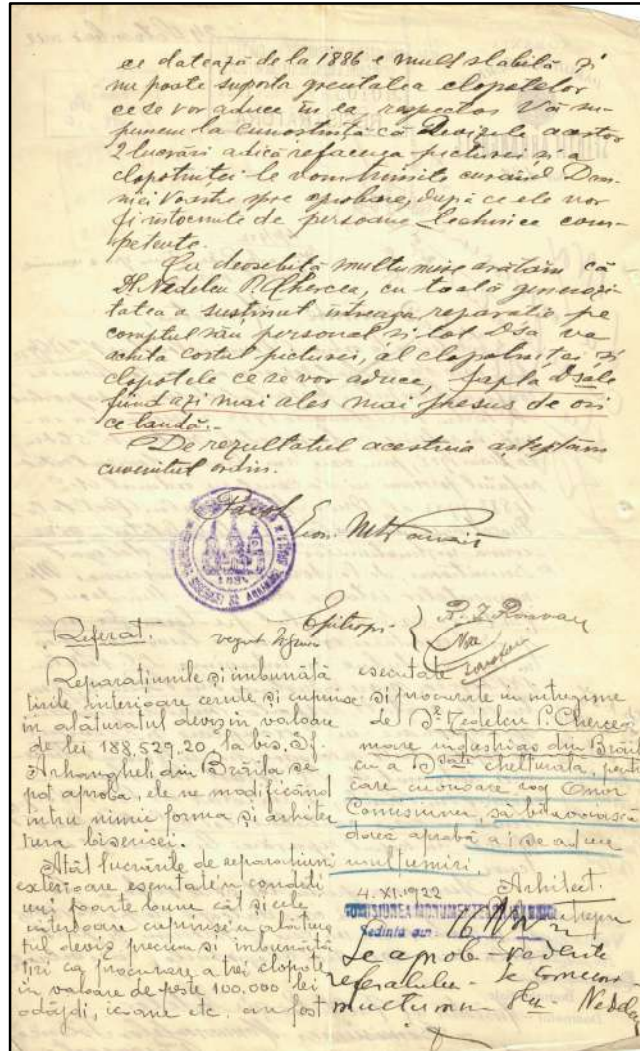 ce datează de la 1886 e mult slabită și
nu poate suporta greutatea clopotelor
ce se vor aduce în ea, respectos Vă su-
punem la cunoștință că Devizele acestor
2 lucrări adică refacerea picturei și a
clopotniței le vom trimite curând Dom-
niei Voastre spre aprobare, după ce ele vor
fi intocmite de persoane technice com-
petente.
Cu deosebită multumire arătăm că
Dl. Nedelcu P. Chercea, cu toată generozi-
tatea a susținut intreaga reparatie pe
comptul său personal si tot Dsa va
achita costul picturei, al clopotniței și
clopotele ce se vor aduce, fapta Dsale
fiind azi mai ales mai presus de ori
ce laudă.-
De rezultatul acestuia asteptăm
cuvenitul ordin.
Paroh, Econ.
1894
Epitropi
Referat.
Reparațiunile și imbunătă
țirile interioare cerute și cuprinse
in alăturatul deviz in valoare
de lei 188.529,20 la bis. Sf.
Arhangheli din Brăila se
pot aproba, ele ne modificând
intru nimic forma și arhitec
tura bisericei.
Atât lucrările de reparațiuni
exterioare esecutate in condiți
uni foarte bune cât și cele
interioare cuprinse in alătura
tul deviz precum și imbunătă
țiri ca procurare a trei clopote
in valoare de peste 100.000 lei
odăjdii, icoane etc. au fost
esecutate
și procurate in intregime
de Dl. Nedelcu P. Chercea
mare industriaș din Brăila
cu a Dsale cheltuială, pentru
care cu onoare rog Onor
Comisiune, să binevoiască
dacă aprobă a i se aduce
mulțumiri.
4.XI.1922
Arhitect.
COMISIUNEA MONUMENTELOR ISTORICE
Sedinta din 16 Nov 22
Se aprobă
referatului. Se
multumiri Dlui Nedelcu